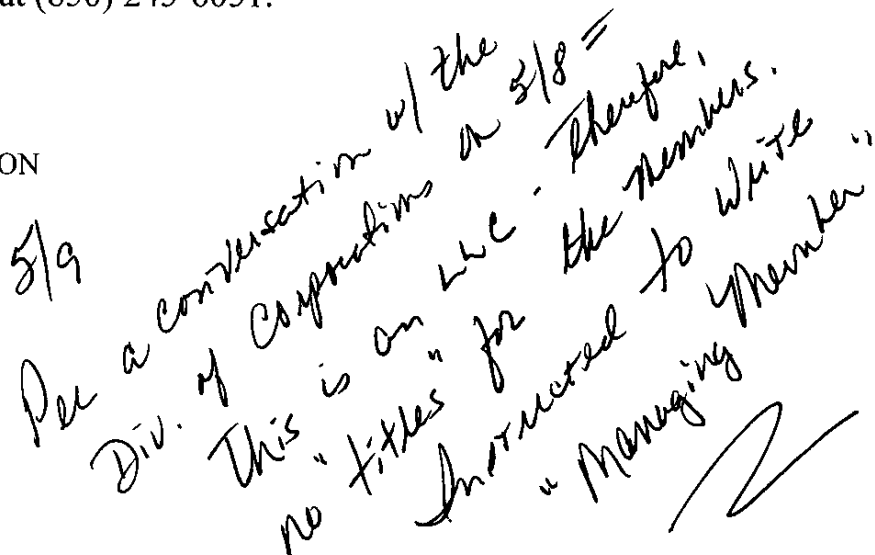 at (850) 245-6051.
ON
5/9
Per a conversation w/ the
Div. of Corporations on 5/8 =
This is an LLC - Therefore,
no "titles" for the members.
Instructed to write
"Managing Member"